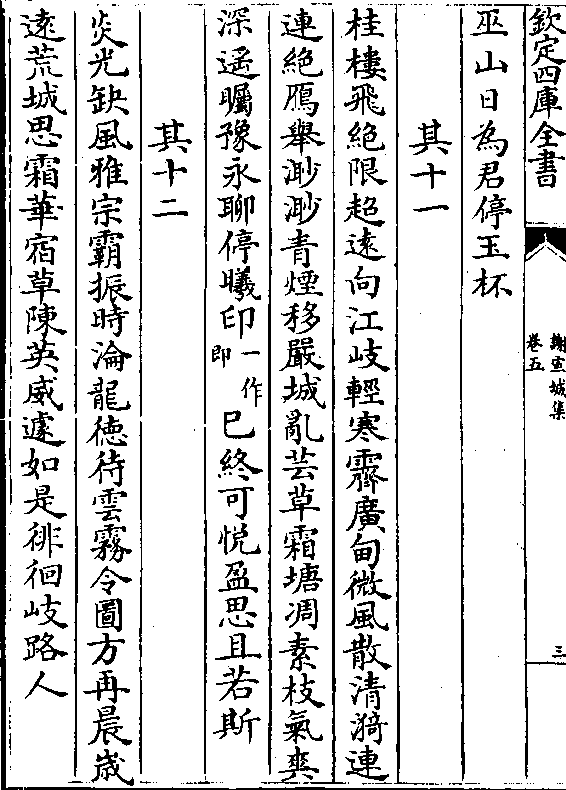 欽定四庫全書
謝宣城集
卷五
三
巫山日為君停玉杯
其十一
桂樓飛絶限超遠向江岐輕寒霽廣甸微風散清漪連
連絶鴈舉渺渺青煙移嚴城亂芸草霜塘凋素枝氣爽
深遥矚豫永聊停曦印一作即已終可悅盈思且若斯
其十二
炎光缺風雅宗霸振時淪龍徳待雲霧令圖方再晨歲
逺荒城思霜華宿草陳英威遽如是徘徊岐路人